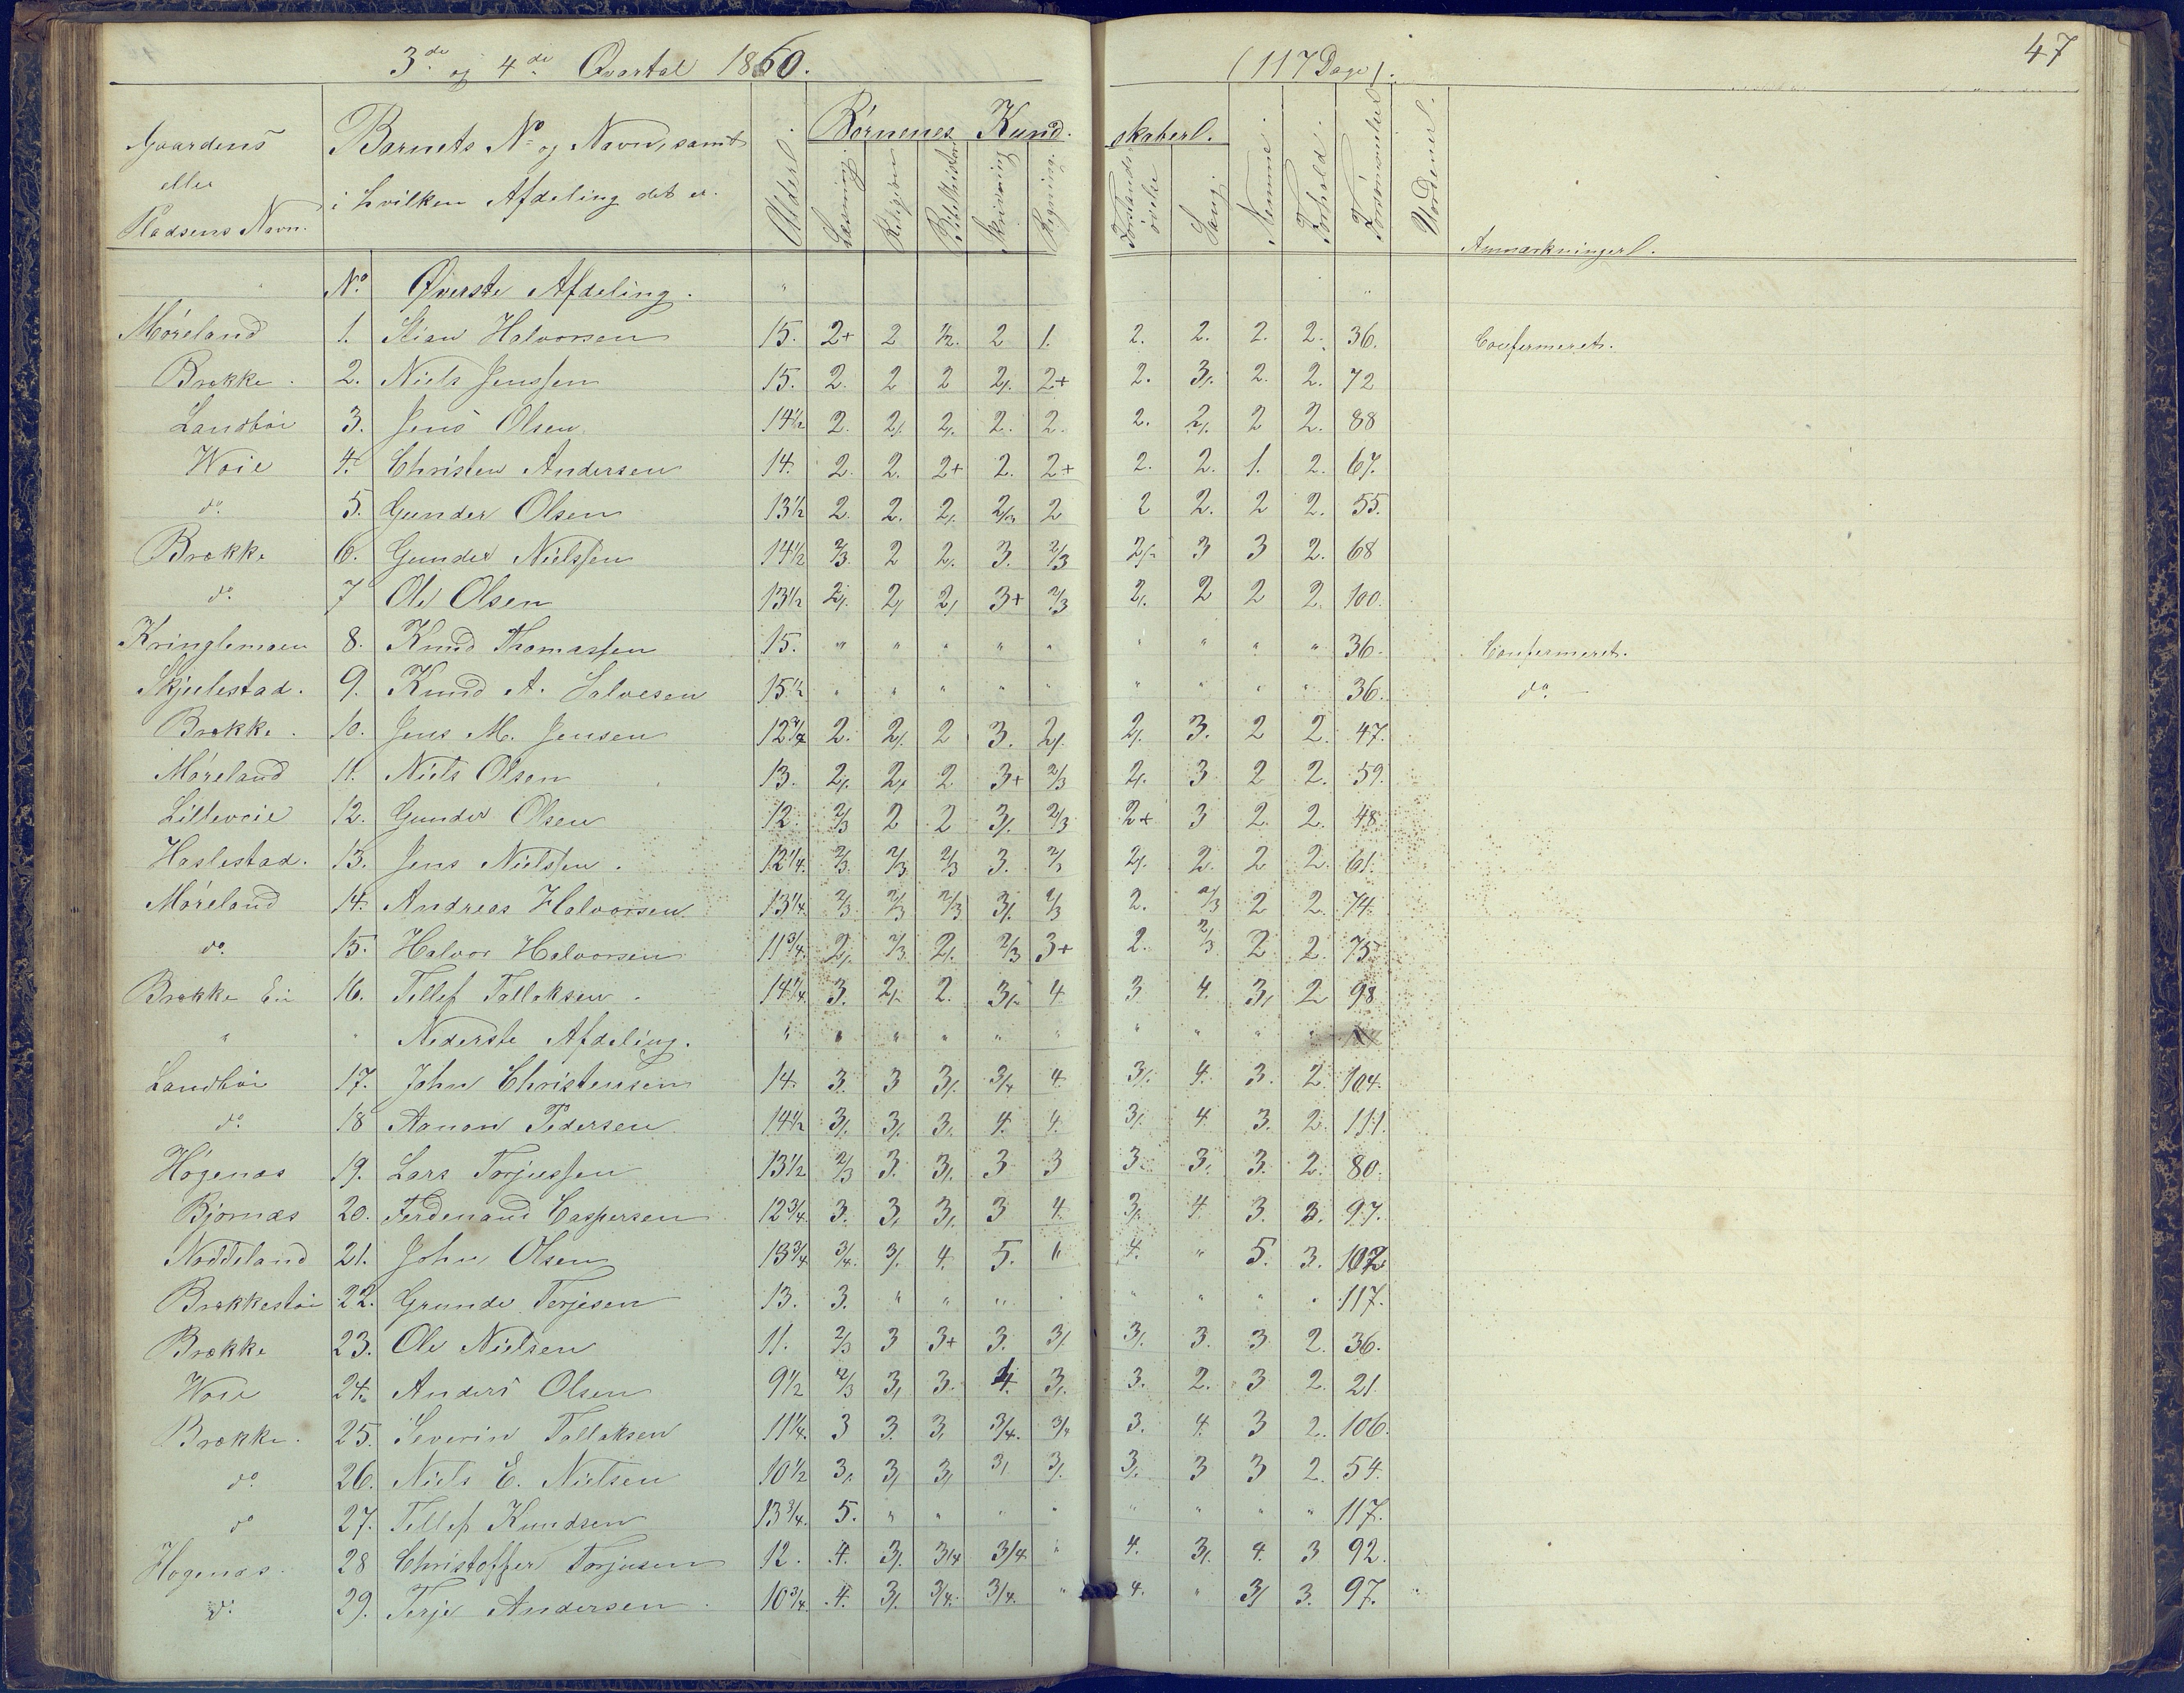 3de og 4de Qvartal 1860. (117 Dage). 47
Gaardens eller Pladsens Navn. Barnets No og Navn, samt i hvilken Afdeling det er. Alder. Børnenes Kundskaber. Læsning. Religion Bibelhistorie Skrivning Regning. Forstands øvelse Sang. Nemme. Forhold. Forsømmelser Udseende. Anmærkninger.
No. Øverste Afdeling. "
Møreland 1. Stian Halvorsen 15. 2+ 2 1/2. 2 1. 2. 2. 2. 2. 36. Confermeret.
Brække. 2. Niels Jenssen 15. 2. 2 2 2/. 2+ 2. 3/. 2. 2. 72
Landbøe 3. Jens Olsen 14 1/2 2. 2/. 2/. 2. 2. 2. 2/. 2 2. 88
Woie 4. Christen Andersen 14. 2. 2. 2+ 2. 2+ 2. 2. 1. 2. 67.
do. 5. Gunder Olsen 13 1/2 2. 2. 2/. 2/3 2 2 2. 2 2. 55.
Brække 6. Gunder Nielssen 14 1/2 2/3. 2 2. 3. 2/3 2/. 3 3 2. 68
do. 7 Ole Olsen 13 1/2 2/. 2/ 2/ 3+ 2/3 2/. 2 2 2. 100.
Kringlemoen 8. Knud Thomassen 15. " " " " " " " " " 36. Confermeret.
Skjulestad. 9. Knud A. Salvesen 15 1/2 " " " " " " " " " 36. do.
Brække. 10. Jens M. Jensen 12 3/4 2. 2/. 2 3. 2/. 2/. 3. 2 2. 47.
Møreland 11. Niels Olsen 13. 2/. 2/. 2. 3+ 2/3 2/. 3 2 2. 59.
Lillevoie 12. Gunder Olsen 12. 2/3 2 2 3/. 2/3 2+ 3 2. 2. 48
Haslestad. 13. Jens Nielssen. 12 1/4. 2/3. 2/3 2/3 3. 2/3 2/. 2. 2 2. 61.
Møreland 14. Andreas Halvorsen 13 1/4. 2/3. 2/3 2/3 3/. 2/3 2. 2/3 2 2. 74.
do. 15. Halvor Halvorsen 11 3/4. 2/. 2/3. 2/. 2/3 3+ 2. 2/3 2 2. 75
Brække Ei 16. Tellef Tallaksen. 14 1/4. 3. 2/. 2. 3/. 4 3 4. 3/ 2 98
" " Nederste Afdeling. " " " " " " " " " "
Landbøe 17. John Christensen 14. 3. 3 3/. 3/4 4. 3/. 4. 3. 2 104.
do. 18 Aanon Pedersen 14 1/2 3/. 3/. 3. 4. 4. 3/. 4. 3. 2. 111.
Høgenæs 19. Lars Torjussen 13 1/2 2/3 3. 3/. 3 3 3. 3. 3. 2. 80.
Bjørnæs 20. Ferdenand Caspersen 12 3/4. 3. 3/ 3/. 3 4. 3/. 4. 3. 3. 97.
Noddeland 21. John Olsen 13 3/4 3/4. 3/. 4. 5. " 4. " 5. 3. 102
Brækkestøe 22. Grunde Terjesen 13. 3. " " " " " " " " 117.
Brække 23. Ole Nielsen 11. 2/3 3 3+ 3. 3/ 3/. 3. 3 2. 36.
Woie 24. Anders Olsen 9 1/2 2/3 3/ 3. 4. 3/. 3. 2. 3 2. 21.
Brække. 25. Severin Tallaksen 11 1/4. 3 3. 3. 3/4. 3/4 3. 4. 3 2. 106.
do 26. Niels E. Nielsen 10 1/2 3/. 3/ 3/ 3/. 3/. 3/. 3 3 2. 54.
do 27. Tellef Knudsen 13 3/4. 5. " " " " " " " " 117.
Høgenæs. 28 Christoffer Torjusen 12. 4. 3/. 3/4 3/4 " 4. 3/. 4. 3 92.
do. 29. Terje Andersen. 10 3/4. 4. 3/. 3/4. 3/4. " 4. " 3/ 3. 97.